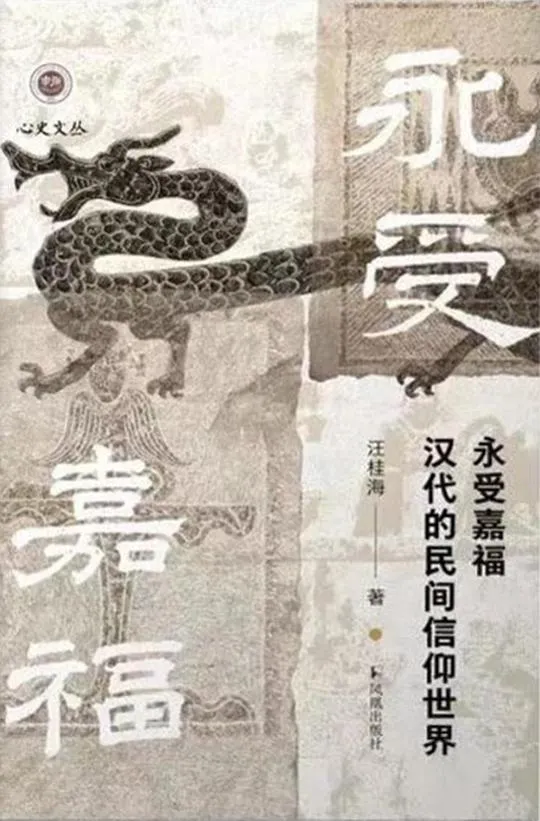 心史文丛
永受
嘉福
永受嘉福
汉代的民间信仰世界
汪桂海 著
凤凰出版社